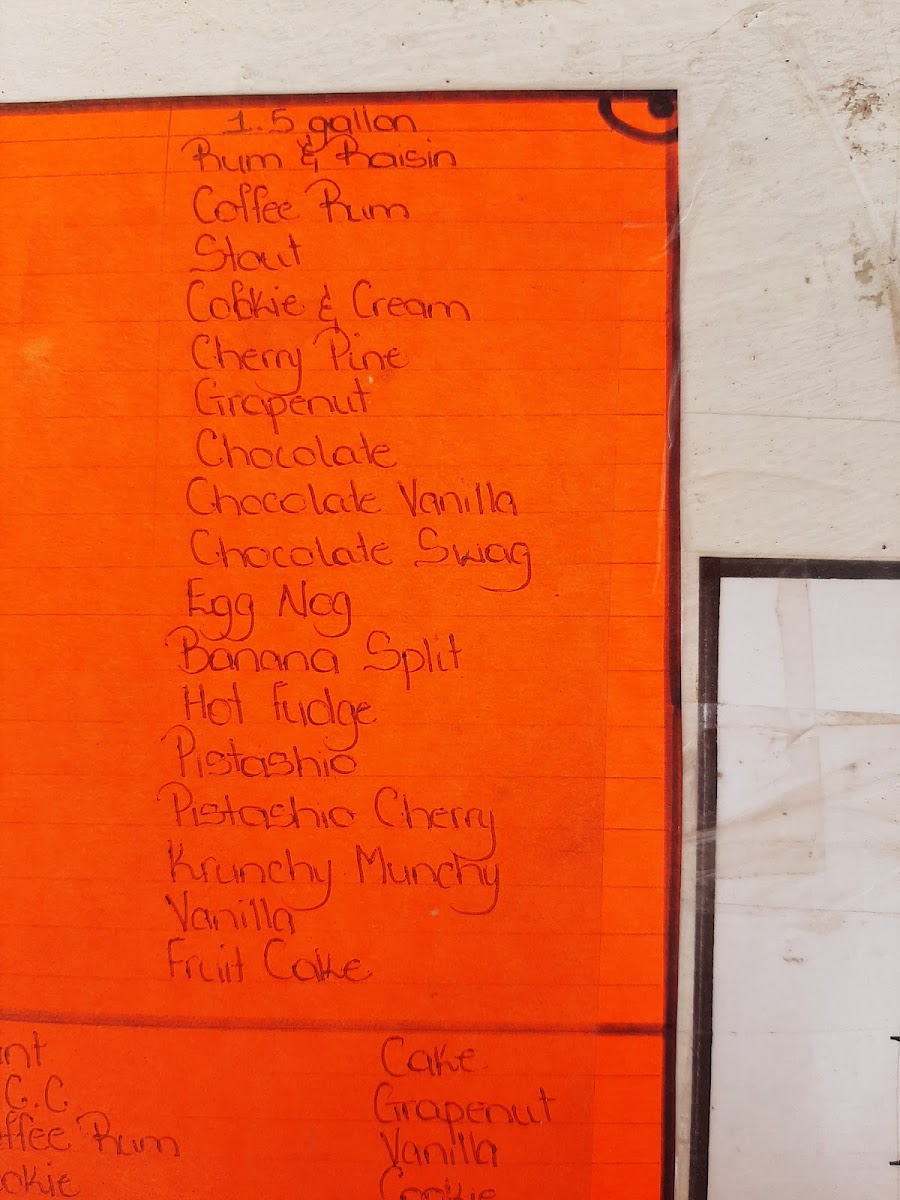 1.5 gallon
Rum & Raisin
Coffee Rum
Stout
Cookie & Cream
Cherry Pine
Grapenut
Chocolate
Chocolate Vanilla
Chocolate Swag
Egg Nog
Banana Split
Hot Fudge
Pistashio
Pistashio Cherry
Krunchy Munchy
Vanilla
Fruit Cake
Cake
C.C
Grapenut
Rum
Vanilla
Cookie